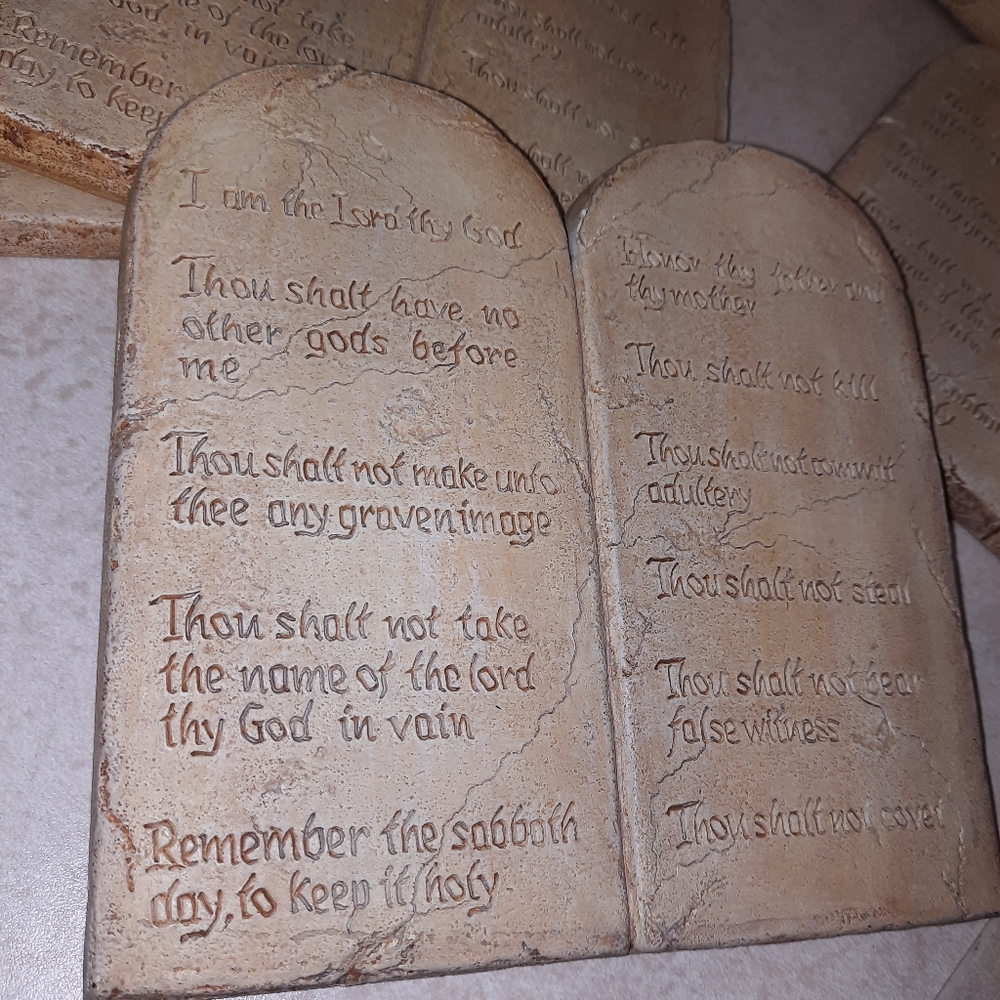 I am the Lord thy God
Thou shalt have no
other gods before
me
Thou shalt not make unto
thee any graven image
Thou shalt not take
the name of the lord
thy God in vain
Remember the sabbath
day, to keep it holy
Honor thy father and
thy mother
Thou shalt not kill
Thou shalt not commit
adultery
Thou shalt not steal
Thou shalt not bear
false witness
Thou shalt not covet
not take
me of the lord
God in vain
Remember
day, to keep
adultery
Thou shalt